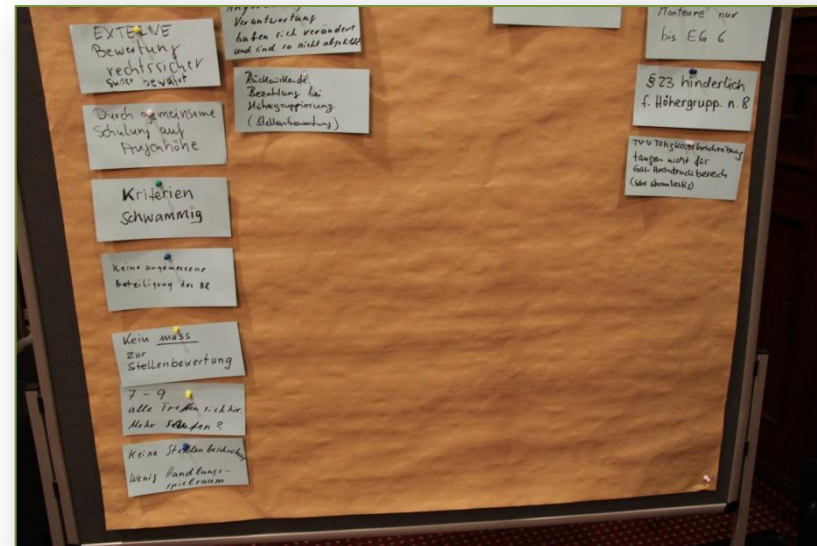 EXTERNE
Bewertung
rechtssicher
Durch gemeinsame
Schulung auf
Augenhöhe
Kriterien
schwammig
Keine angemessene
Beteiligung des BR
Kein muss
zur
Stellenbewertung
7 - 9
alle Treffen sich hier
Mehr Stufen?
Keine Stellenbeschreibung
Wenig Handlungs-
spielraum
Verantwortung
haben sich verändert
und sind so nicht
Rückwirkende
Bezahlung bei
Höhergruppierung
(Stellenbewertung)
Monteure nur
bis EG 6
§ 23 hinderlich
f. Höhergrupp. n. 8
TV-V Tätigkeitsbeschreibung
taugen nicht für
Gas Hochdruckbereich
(sehr stromlastig)